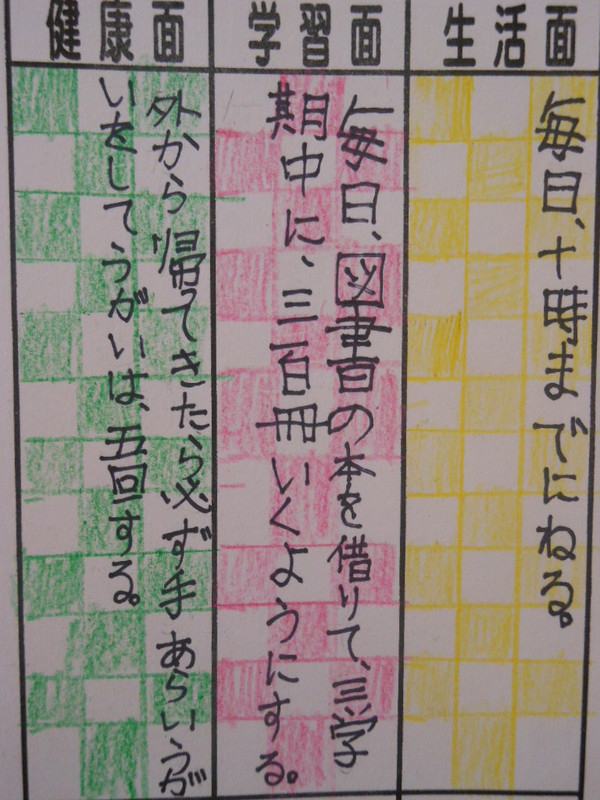 生活面
毎日、十時までにねる。
学習面
毎日、図書の本を借りて、三学
期中に、三百冊いくようにする。
健康面
外から帰ってきたら必ず手あらいうが
いをしてうがいは、五回する。